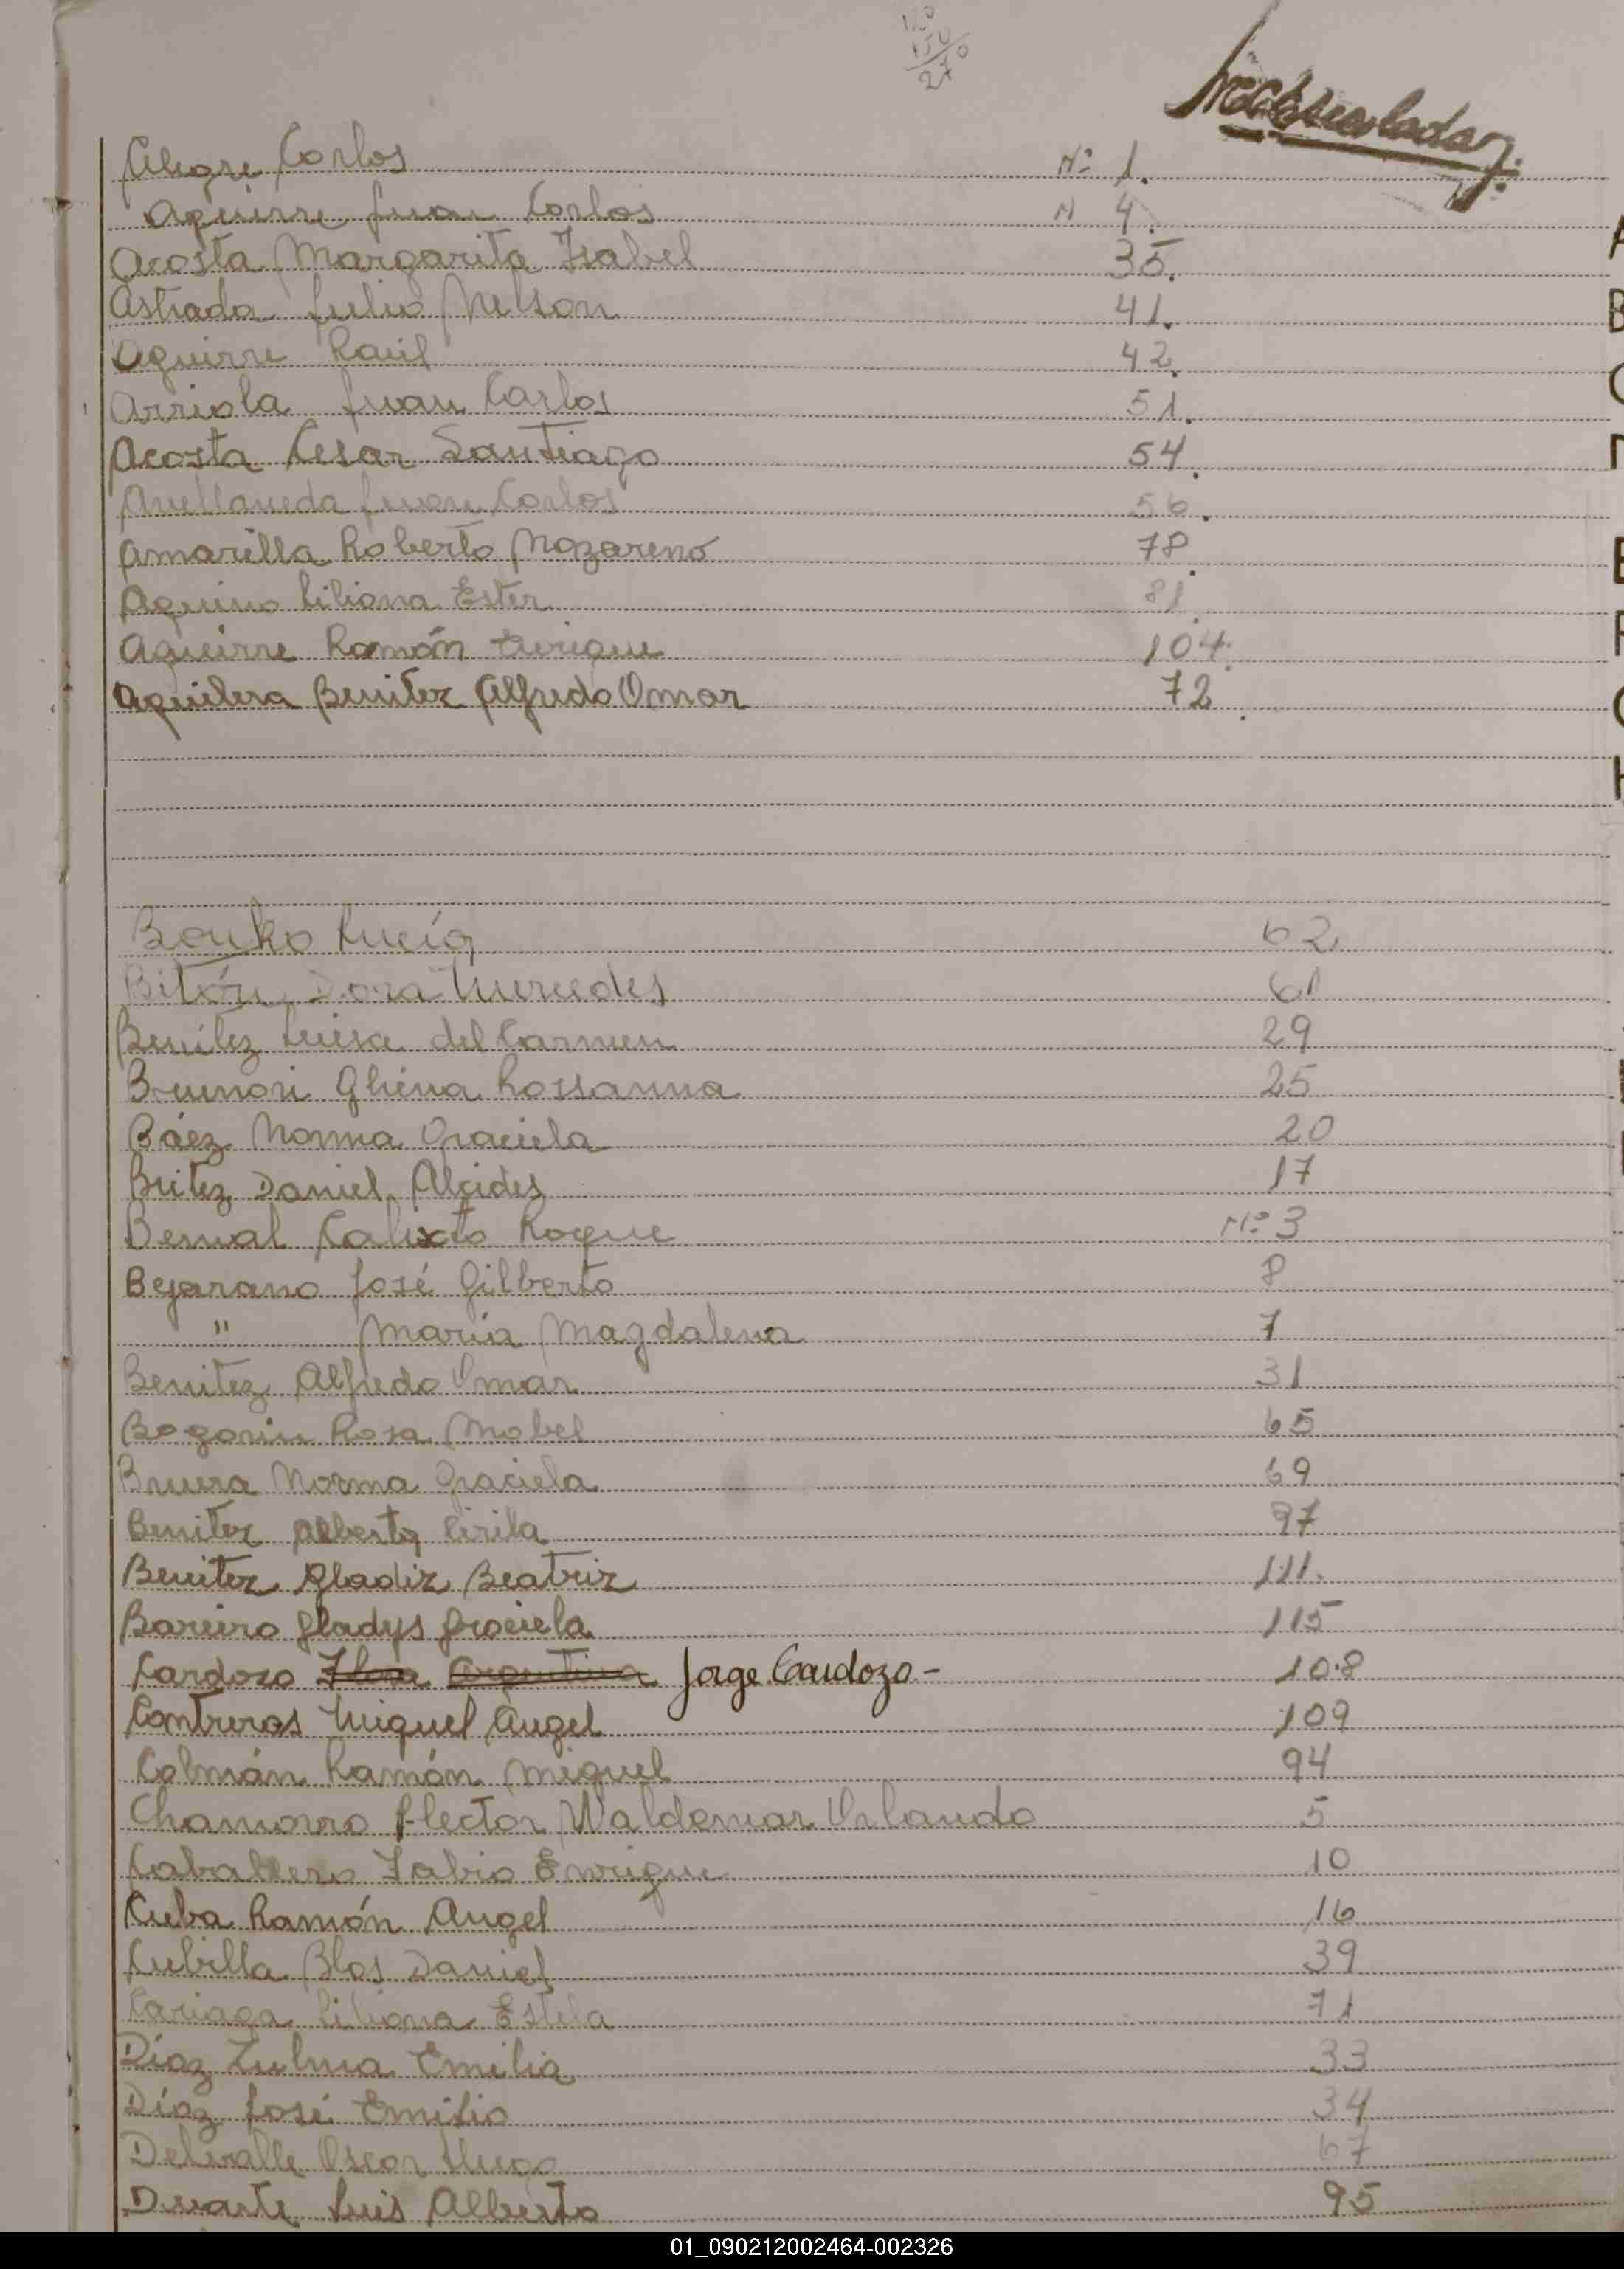 120
150
270
Alegre Carlos Nº 1.
Aguirre Juan Carlos N 4.
Acosta Margarita Isabel 35.
Astrada Julio Nelson 41.
Aguirre Raúl 42.
Arriola Juan Carlos 51.
Acosta Cesar Santiago 54.
Avellaneda Juan Carlos 56.
Amarilla Roberto Nazareno 78.
Aquino Liliana Ester 81.
Aguirre Ramón Enrique 104.
Aguilera Benitez Alfredo Omar 72.
Lucía 62
Bitón Dora Mercedes 61
Benítez Luisa del Carmen 29
Brumori Ghina Rossanna 25
Báez Norma Graciela 20
Britez Daniel Alcides 17
Bernal Calixto Roque Nº 3
Bejarano José Gilberto 8
" María Magdalena 7
Benitez Alfredo Omar 31
Bogarin Rosa Mabel 65
Bruera Norma Graciela 69
Benitez Alberta Cirila 97
Benitez Gladiz Beatriz 111.
Bareiro Gladys Graciela 115
Cardozo Argentina Jorge Cardozo- 108
Contreras Miguel Angel 109
Colmán Ramón Miguel 94
Chamorro Hector Waldemar Orlando 5
Caballero Fabio Enrique 10
Cuba Ramón Angel 16
Cubilla Blas Daniel 39
Cariaga Liliana Estela 71
Díaz Zulma Emilia 33
Díaz José Emilio 34
Delvalle Oscar Hugo 67
Duarte Luis Alberto 95
A
B
C
E
F
G
H
01_090212002464-002326